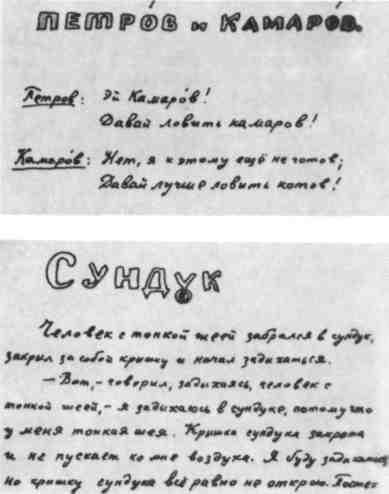 ПЕТРÓВ и КАМАРÓВ.
Петров: Эй Камарóв!
Давай ловить камаров!
Камарóв: Нет, я к этому ещё не готов;
Давай лучше ловить котов!
СУНДУК
Человек с тонкой шеей забрался в сундук,
закрыл за собой крышку и начал задыхаться.
— Вот, — говорил, задыхаясь, человек с
тонкой шеей, — я задыхаюсь в сундуке, потому что
у меня тонкая шея. Крышка сундука закрыта
и не пускает ко мне воздуха. Я буду задыхаться
но крышку сундука всё равно не открою. Постеп